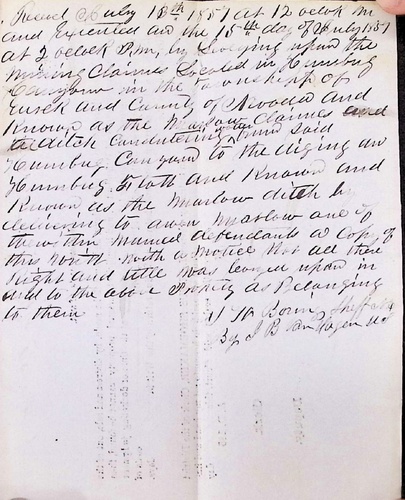 Recd July 13th 1857 at 12 oclok M
and Executed on the 15th day of July 1857
at 2 oclock P.M, by Leveying upon the
Mining Claimes Located in Humbug
Canyon in the Township of
Eurek and County of Nevada and
Known as the Marlow Claimes and
Ditch Conducting water from said
Humbug Canyon to the diging on
Humbug Flatt and Known and
Known as the Marlow ditch by
delivering to Marlow one of
the within named defendants a Copy of
this writt with a notice that all there
Right and title was levied upon in
and to the above Property as Belonging
to them
W Sheriff
By J B Van Hagen